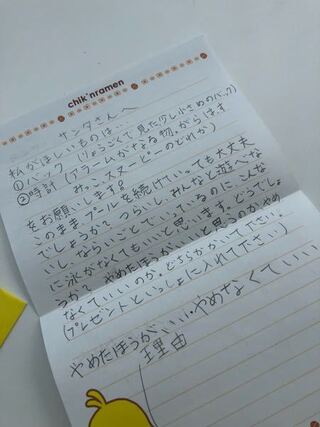 chik'nramen
サンタさんへ
私がほしいものは…
①バッグ(りょうごくで見た少し小さめのバック)
②時計(アラームがなる物。がらは、す
みっこスヌーピーのどれか)
をお願いします。
このままプールを続けていっても大丈夫
でしょうか?つらいし、みんなと遊べな
いし、ならいごとでいているのに、こんな
に泳がなくてもいいと思います。どうでしょ
うか?やめたほうがいいと思うのかやめ
なくていいのか。どちらかかいて下さい。
(プレゼントといっしょに入れて下さい)
やめたほうがいい・やめなくていい
理由